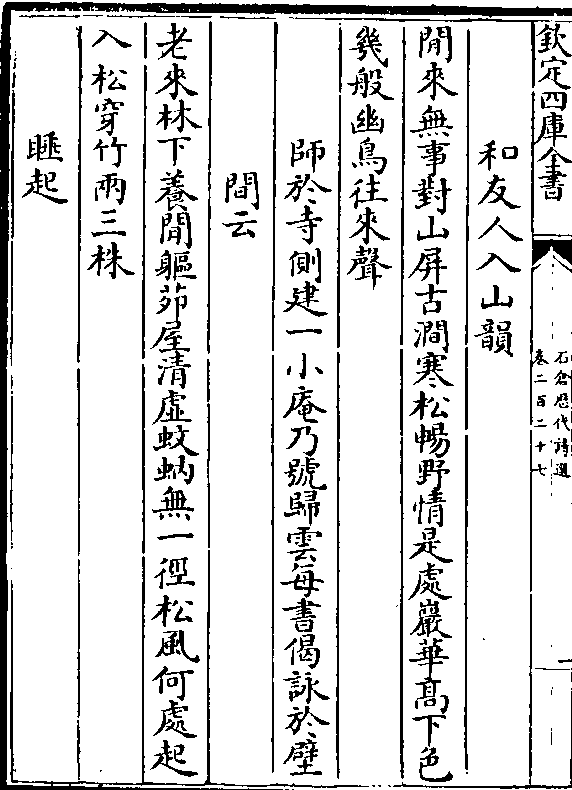 欽定四庫全書
石倉歷代詩選
卷二百二十七
和友人入山韻
閒來無事對山屏古澗寒松暢野情是處巖華高下色
幾般幽鳥往來聲
師於寺側建一小庵乃號歸雲每書偈詠於壁
間云
老來林下養閒軀茆屋清虛蚊蚋無一徑松風何處起
入松穿竹兩三株
睡起